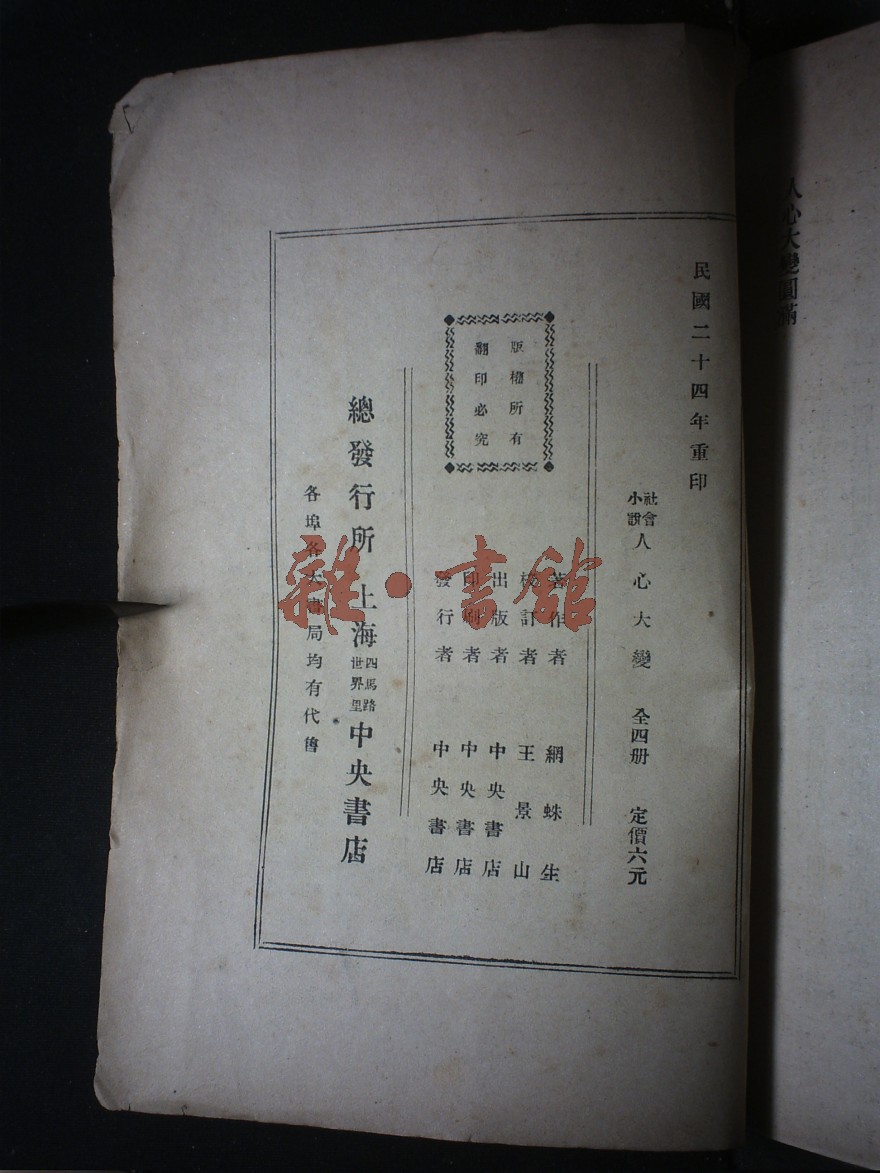 人心大變圓滿
民國二十四年重印
社會小說 人心大變 全四册 定價六元
版權所有
翻印必究
著作者 網蛛生
校訂者 王景山
出版者 中央書店
印刷者 中央書店
發行者 中央書店
總發行所 上海 四馬路世界里 中央書店
各埠各大書局均有代售
雜·書館